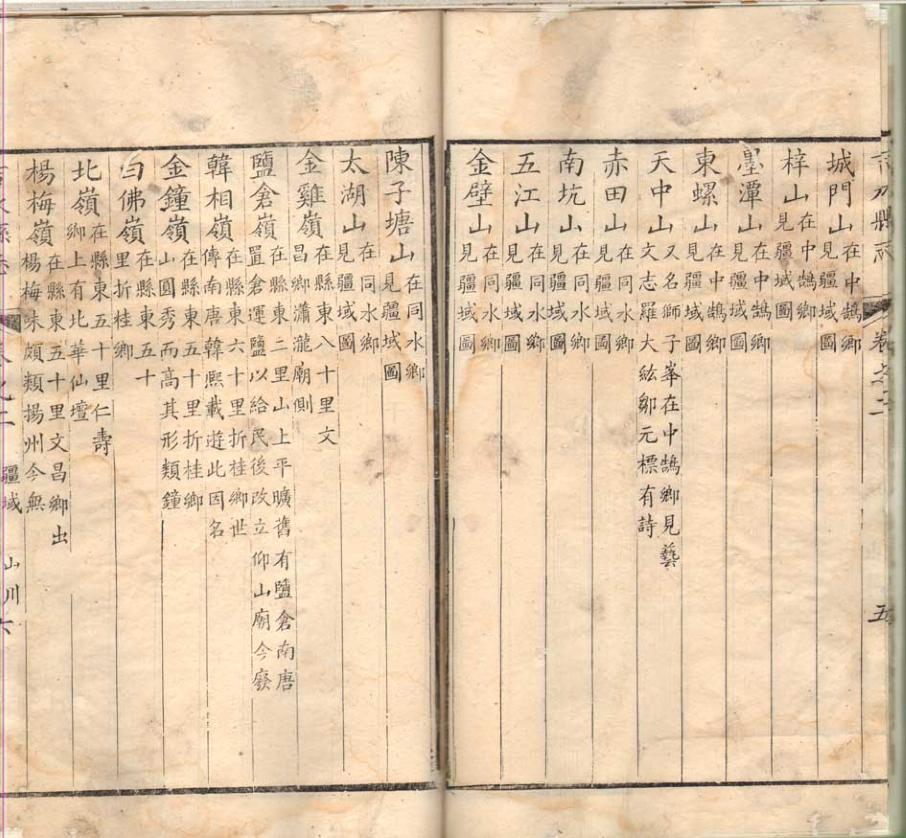 縣志 卷之二 五
城門山在中鵠鄉見疆域圖
梓山在中鵠鄉見疆域圖
墨潭山在中鵠鄉見疆域圖
東螺山在中鵠鄉見疆域圖
天中山又名獅子峯在中鵠鄉見藝文志羅大紘鄒元標有詩
赤田山在同水鄉見疆域圖
南坑山在同水鄉見疆域圖
五江山在同水鄉見疆域圖
金壁山在同水鄉見疆域圖
陳子塘山在同水鄉見疆域圖
太湖山在同水鄉見疆域圖
金雞嶺在縣東八十里文昌鄉瀟瀧廟側
鹽倉嶺在縣東二里山上平曠舊有鹽倉南唐置倉運鹽以給民後改立仰山廟今廢
韓相嶺在縣東六十里折桂鄉世傳南唐韓熙載遊此因名
金鐘嶺在縣東五十里折桂鄉山圓秀而高其形類鐘
白佛嶺在縣東五十里折桂鄉
北嶺在縣東五十里仁壽鄉上有北華仙壇
楊梅嶺在縣東五十里文昌鄉出楊梅味頗類揚州今無
疆域 山川 六